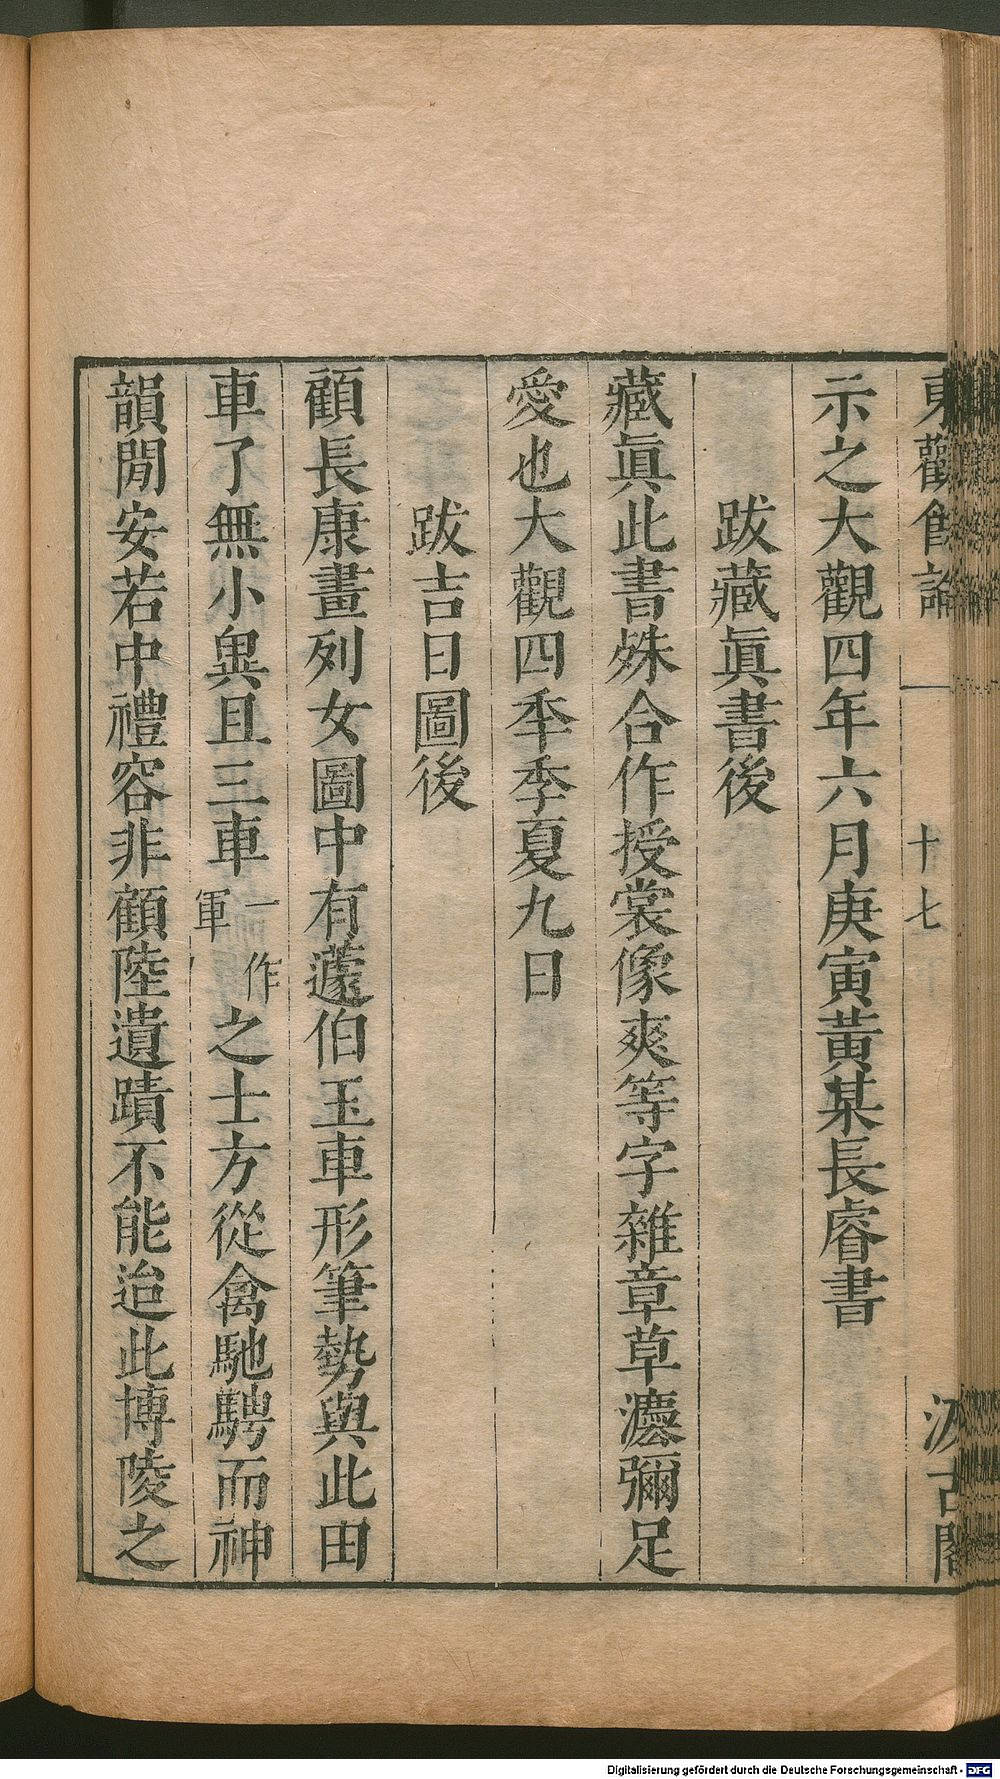 東觀餘論
十七
汲古閣
示之大觀四年六月庚寅黃某長睿書
跋藏眞書後
藏眞此書殊合作授裳像爽等字雜章草灋彌足
愛也大觀四秊季夏九日
跋吉日圖後
顧長康畫列女圖中有蘧伯玉車形筆勢與此田
車了無小異且三車一作軍之士方從禽馳騁而神
韻閒安若中禮容非顧陸遺蹟不能迨此博陵之
Digitalisierung gefördert durch die Deutsche Forschungsgemeinschaft - DFG